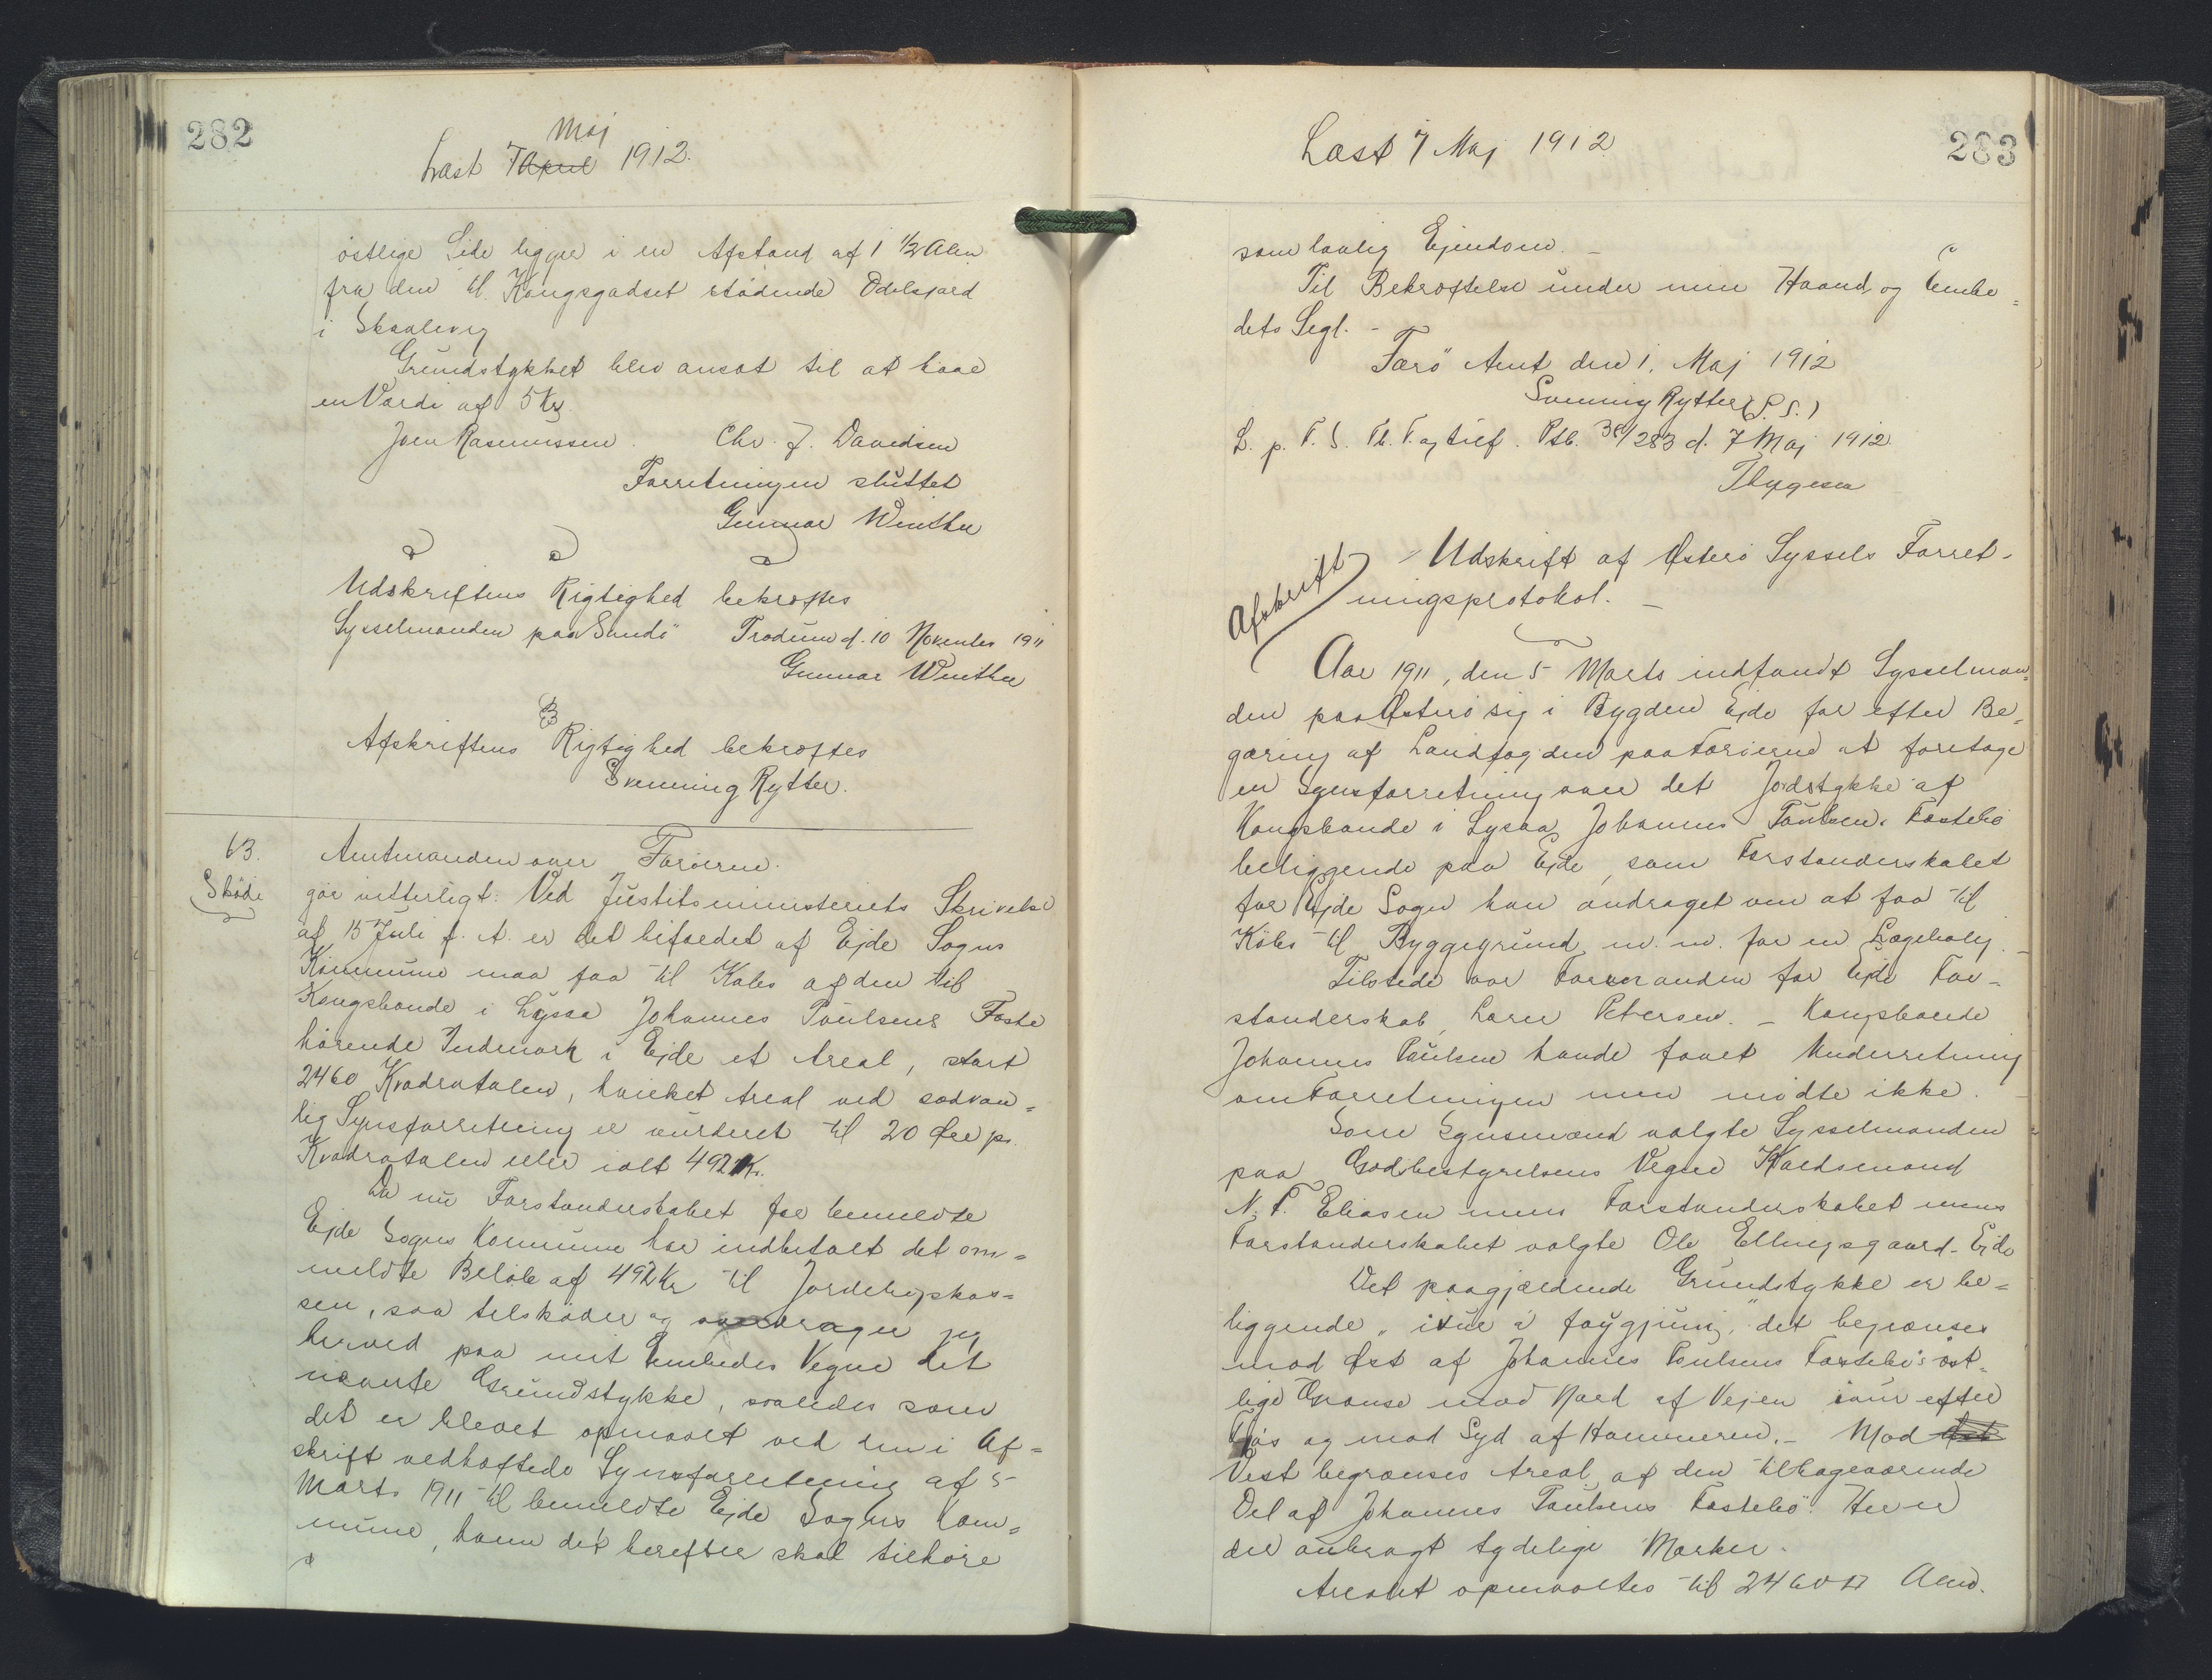 282
Maj
Læst 7 April 1912.
östlige Side ligger i en Afstand af 1 1/2 Alen
fra den til Kongsgodset stödende Odelsjord
i Skaalevig
Grundstykket blev ansat til at have
en Værdi af 5 Kr.
Joen Rasmussen. Chr. J. Davidsen
Forretningen sluttet
Gunnar Winther
Udskriftens Rigtighed bekræftes
Sysselmanden paa Sandö Trödum d. 10 November 1911
Gunnar Winther
Afskriftens Rigtighed bekræftes
Svenning Rytter.
63.
Sköde
Amtmanden over Færöerne.
gör vitterligt: Ved Justitsministeriets Skrivelse
af 15 Juli f. A. er det bifaldet af Ejde Sogns
Kommune maa faa til Köbs af den til
Kongsbonde i Lyssa Johannes Poulsens Fæste
hörende Indmark i Ejde et Areal, stort
2460 Kvadratalen, hvilket Areal ved sædvan=
lig Synsforretning er vurderet til 20 Øre pr.
Kvadratalen eller ialt 492 Kr.
Da nu Forstanderskabet for bemeldte
Ejde Sogns Kommune har indbetalt det om=
meldte Belöb af 492 Kr til Jordebogskas=
sen, saa tilsköder og overdrager jeg
herved paa mit Embedes Vegne det
nævnte Grundstykke, saaledes som
det er blevet opmaalt ved den i Af=
skrift vedhæftede Synsforretning af 5
Marts 1911 til bemeldte Ejde Sogns Kom=
mune, hvem det herefter skal tilhöre
283
Læst 7 Maj 1912
som lovlig Ejendom. -
Til Bekræftelse under min Haand og Embe=
dets Segl. -
Færö Amt den 1. Maj 1912
Svenning Rytter (L. S.)
L. p. F. S. Th. T. og Ptb. 283 d. 7 Maj 1912
Thygesen
Afskrift
Udskrift af Østerö Syssels Forret-
ningsprotokol. -
Aar 1911, den 5 Marts indfandt Sysselman=
den paa Østerö sig i Bygden Ejde for efter Be=
gæring af Landfogden paa Færöerne at foretage
en Synsforretning over det Jordstykke af
Kongsbonde i Lysaa Johannes Poulsens Fæstebö
beliggende paa Ejde, som Forstanderskabet
for Ejde Sogn han andraget om at faa til
Köbs til Byggegrund m. m. for en Lægebolig. -
Tilstede var Formanden for Ejde For-
standerskab, Petersen. - Kongsbonde
Johannes Poulsen havde faaet Underretning
om Forretningen men mödte ikke. -
Som Synsmænd valgte Sysselmanden
paa Godsbestyrelsens Vegne
N. P. Eliasen mens Forstanderskabet mens
Forstanderskabet valgte Ole Ellingsgaard - Ejde
Det paagjældende Grundstykke er be=
liggende " det begrænses
mod Øst af Johannes Poulsens Fæstebö's öst=
lige Grænse mod Nord af Vejen efter
og mod Syd af Hammeren. - Mod
Vest begrænses Areal af den tilbageværende
Del af Johannes Poulsens Fæstebö. Her er
der anbragt tydelige Mærker.
Arealet opmaaltes til 2460 □ Alen.